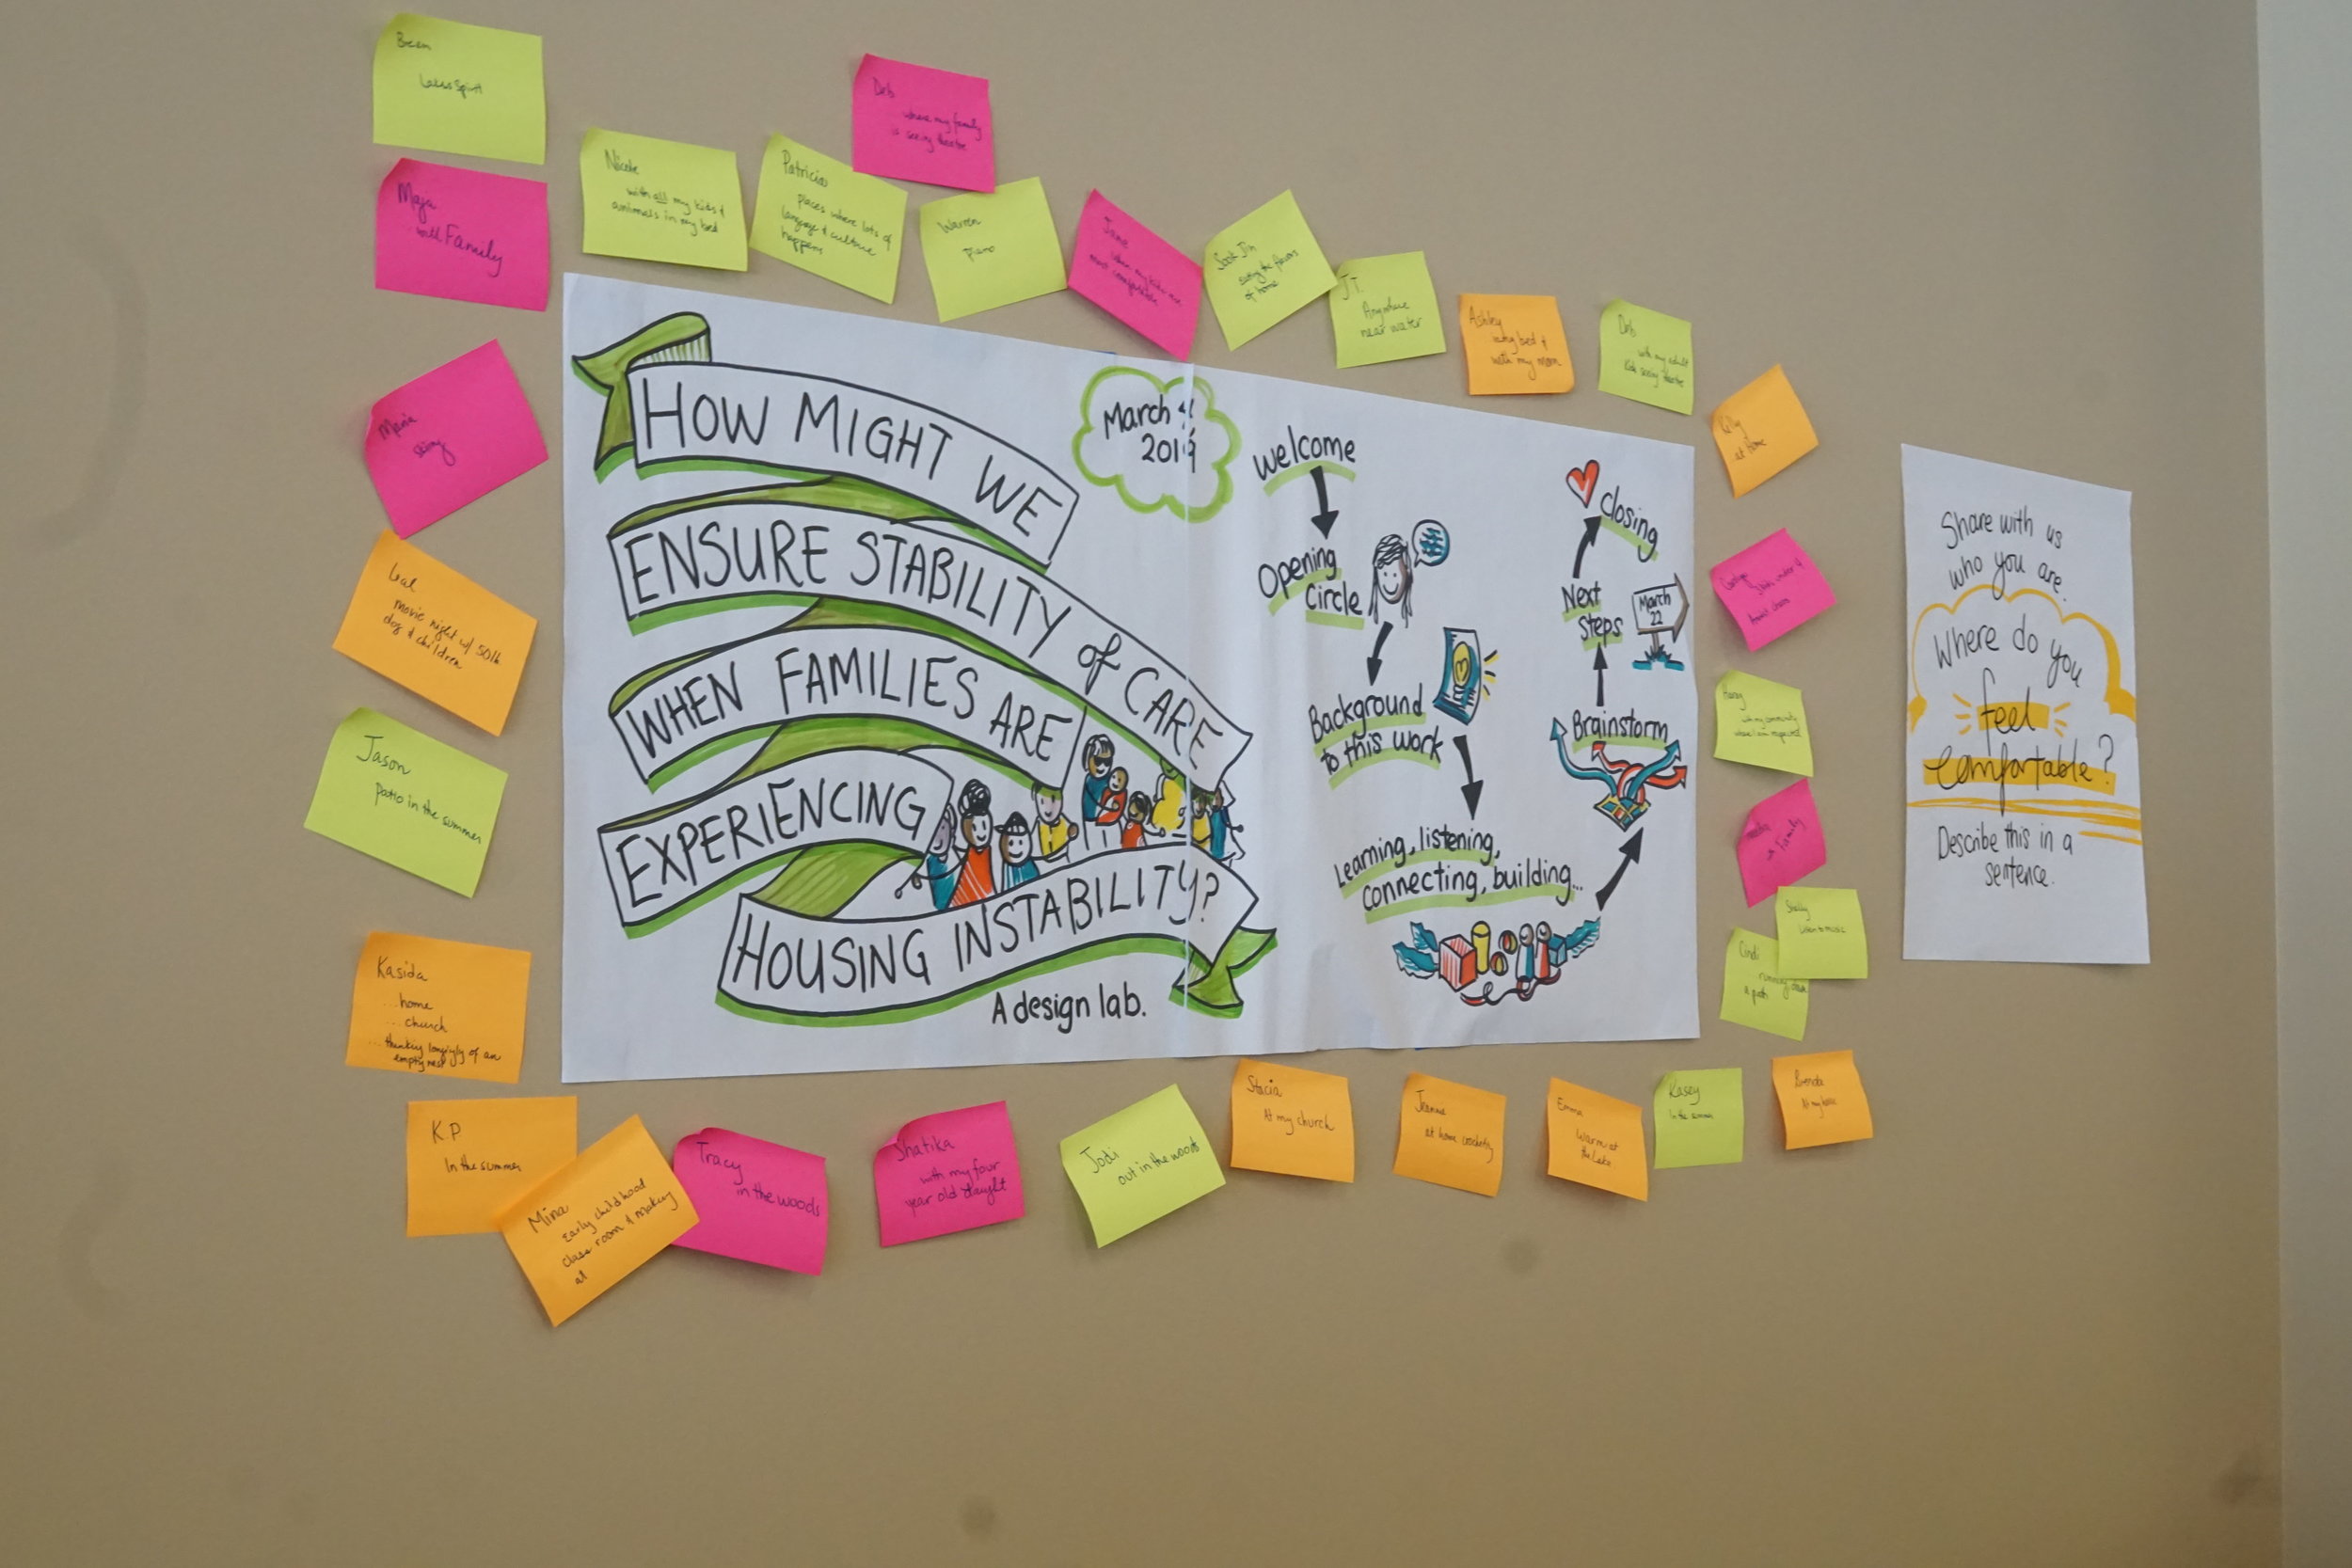 Lakes Spirit
Maja
with Family
Nicole
with all my kids &
animals in my bed
Patricia
places where lots of
language & culture
happens
Deb
where my family
is seeing theatre
Warren
piano
where my kids are
most comfortable
Sook Jin
of home
JT
Anywhere
near water
Ashley
bed &
with my mom
Deb
with my adult
kids seeing theatre
Kelly
at home
with my community
where I am respected
Family
Shelly
Listen to music
Cindi
running down
a path
Brenda
At my home
Kasey
In the summer
Emma
Warm at
the Lake
Jeanne
at home crocheting
Stacia
At my church
Jodi
out in the woods
Shatika
with my four
year old daught
Tracy
in the woods
Mina
Early childhood
class room & making
at
K.P
In the summer
Kasida
...home
...church
...thinking longingly of an
empty nest
Jason
Patio in the summer
movie night w/ 50lb
dog & children
Maria
HOW MIGHT WE
ENSURE STABILITY of CARE
WHEN FAMILIES ARE
EXPERIENCING
HOUSING INSTABILITY?
A design lab.
March
2019
Welcome
Opening
Circle
Background
to this work
Learning, listening,
connecting, building...
Brainstorm
Next
Steps
March
22
Closing
Share with us
who you are.
Where do you
feel
comfortable?
Describe this in a
sentence.